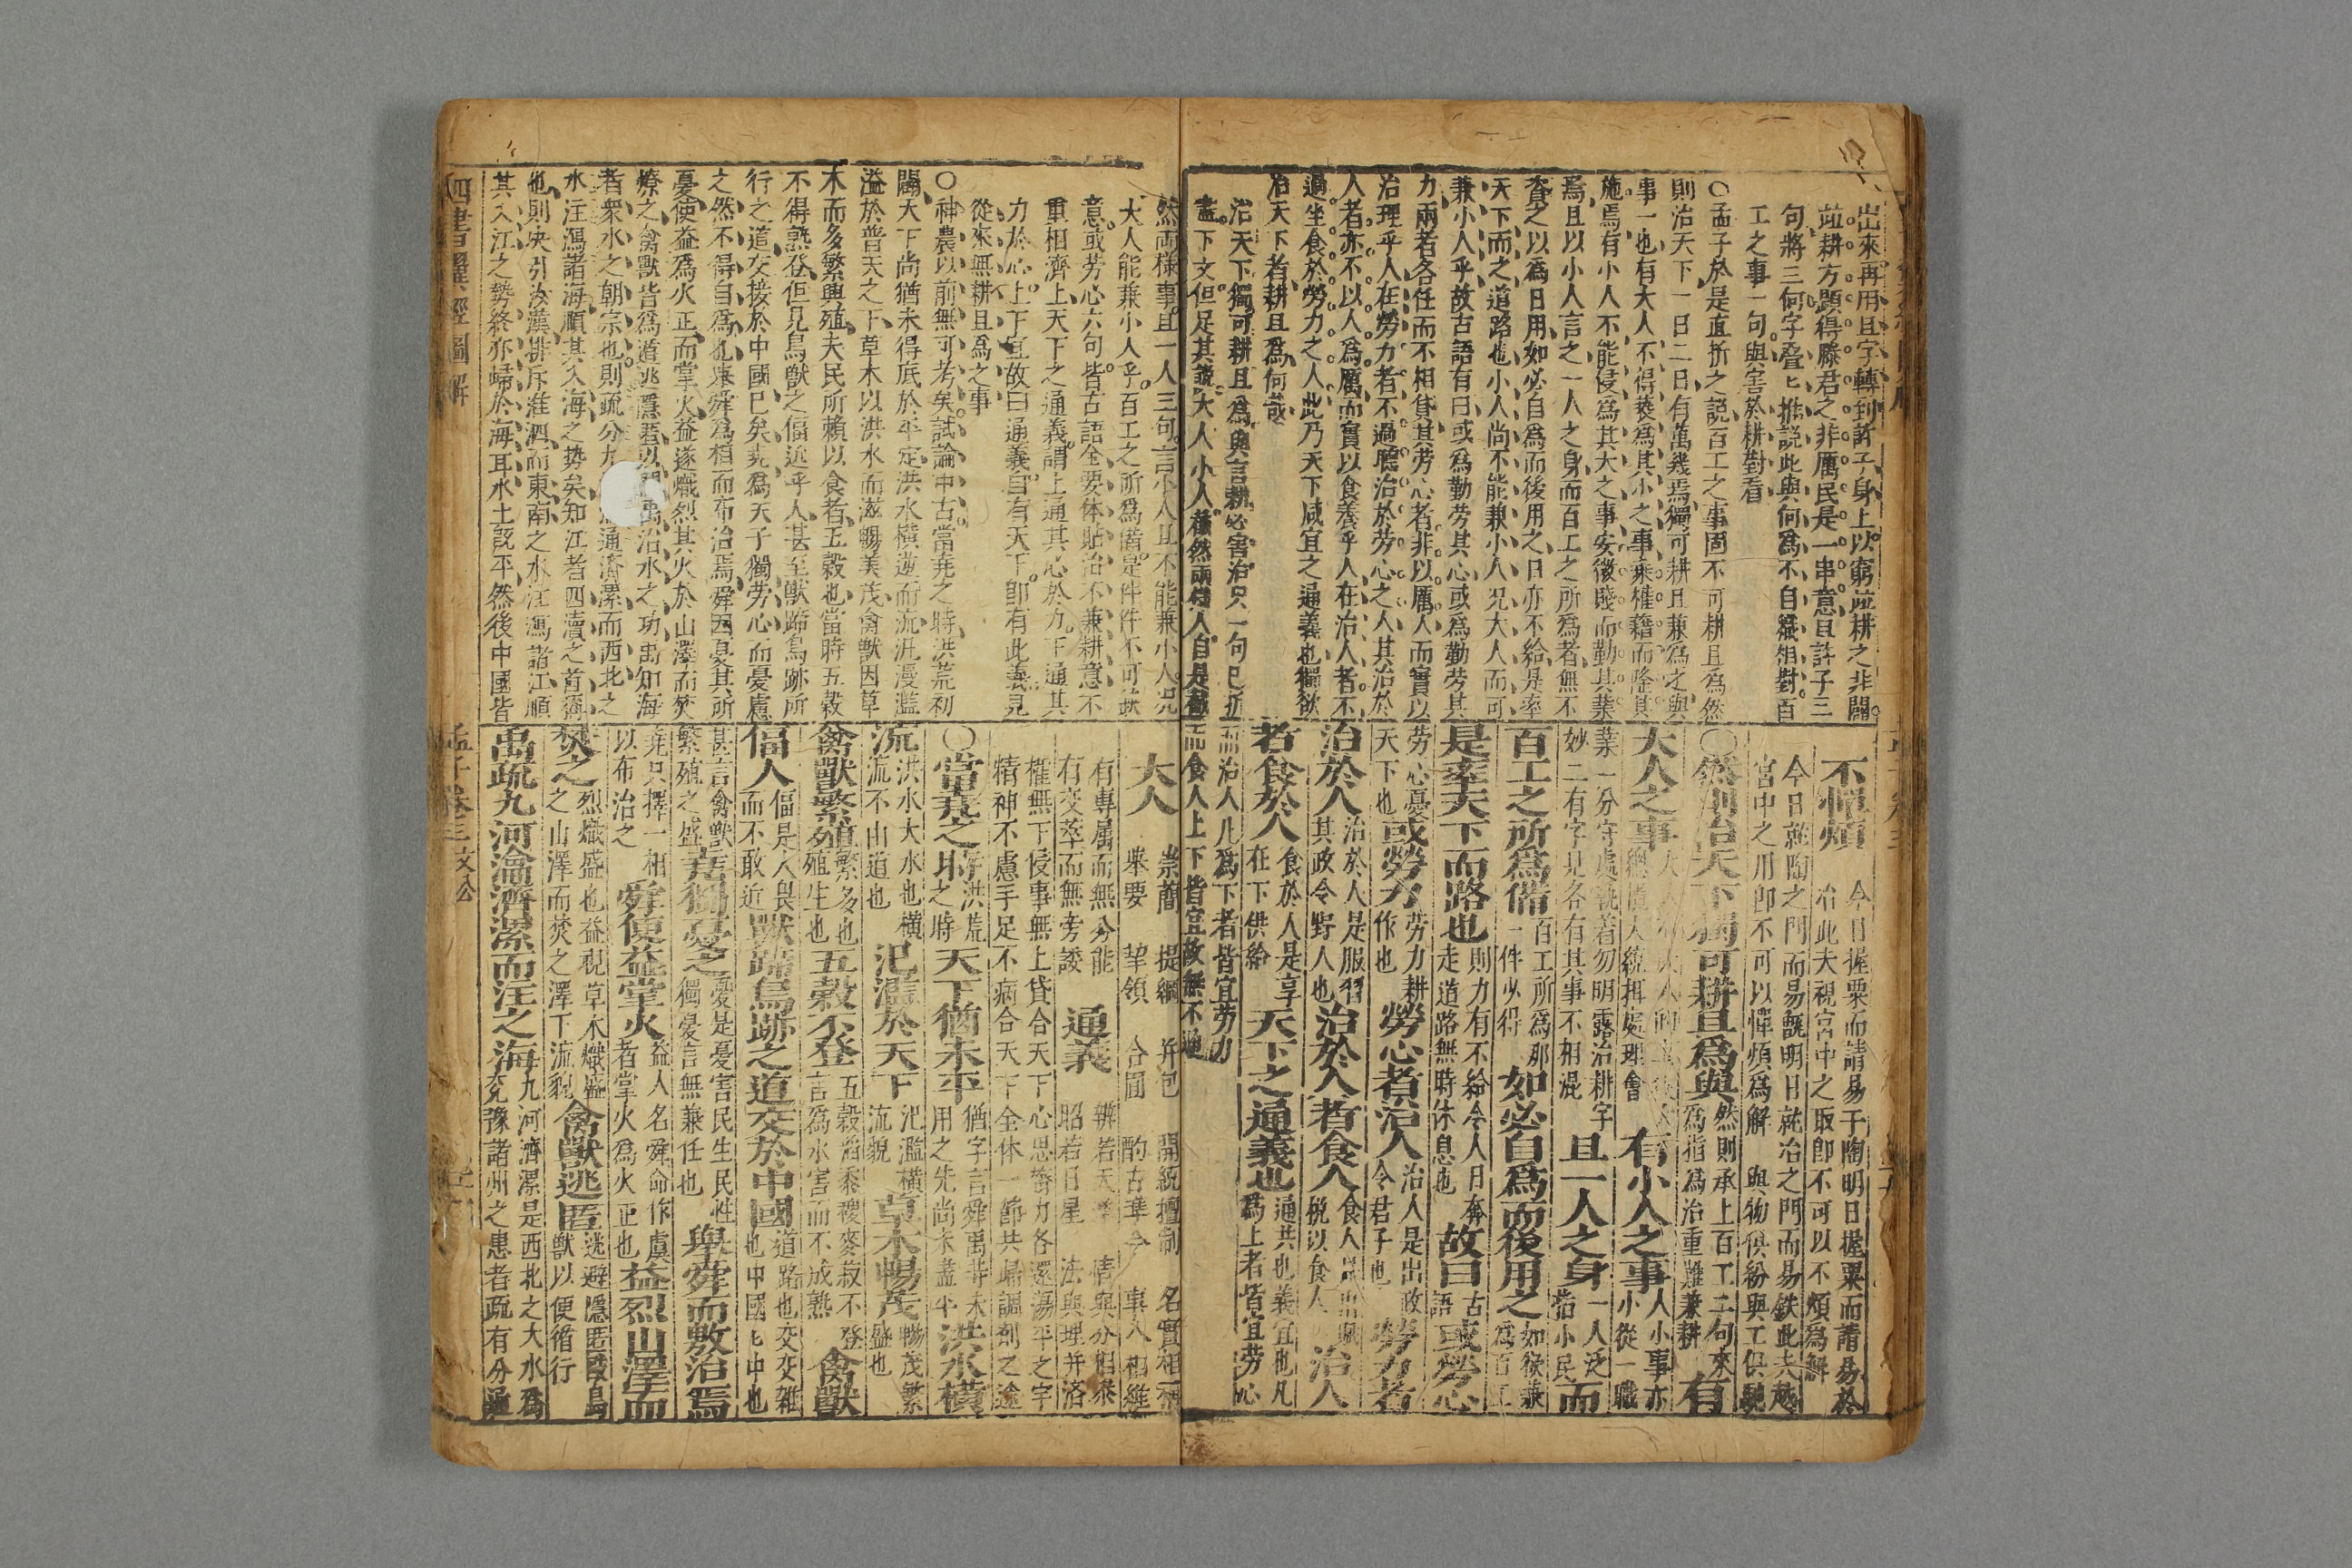 出來再用且字轉到許子身上以窮竝耕之非關
竝耕方顯得滕君之非厲民是一串意且許子三
句將三何字疊七推説此與何爲不自織相對百
工之事一句與害於耕對看
○孟子於是直折之説百工之事固不可耕且為然
則治天下一日二日有萬幾焉獨可耕且兼為之與
事一也有大人不得褻為其小之事秉權藉而隆其
施焉有小人不能侵為其大之事安微賤而勤其業
焉且以小人言之一人之身而百工之所為者無不
資之以為日用如必自為而後用之日亦不給是率
天下而之道路也小人尚不能兼小人况大人而可
兼小人乎故古語有曰或為勤劳其心或為勤劳其
力兩者各任而不相貸其劳心者非以厲人而實以
治理乎人在勞力者不過聽治於劳心之人其治於
人者亦不以人為厲而實以食養乎人在治人者不
過坐食於勞力之人此乃天下咸宜之通義也獨欲
治天下者耕且爲何哉
治天下獨可耕且爲與言耕必害治只一句已折
盡下文但足其說大人小人截然兩様人自是截
不憚煩 今日握粟而請易于陶明日握粟而請易於
冶此夫視宮中之取即不可以不煩為解
今日就陶之門而易甑明日就冶之門而易鉄此夫
宮中之用即不可以憚煩爲解 與物供紛與工俱
○然則治天下獨可耕且爲與 然則承上百工二句來
爲指爲治重雖兼耕 有
大人之事 有小人之事 人小事亦
小從一職
業一分守處執着勿明露治耕字
妙二有字見各有其事不相混 且一人之身 一人泛
指小民 而
百工之所爲備 百工所爲那
一件少得 如必自爲而後用之 如欲兼
爲百工
是率天下而路也 則力有不給令人日奔
走道路無時休息也 故曰 古
語 或勞心
劳心憂
天下也 或勞力 劳力耕
作也 勞心者治人 治人是出政
令君子也 勞力者
治於人 治於人是服習
其政令野人也 治於人者食人 食人
税以食人 治人
者食於人 食於人是享
在下供給 天下之通義也 通共也義宜也凡
爲上者皆宜劳心
而治人凡爲下者皆宜劳力
而食人上下皆宜故無不通
然兩様事且一人三句言小人且不能兼小人况
大人能兼小人乎百工之所爲備是件件不可缺
意或劳心六句皆古語全要体貼治不兼耕意不
重相濟上天下之通義謂上通其心於力下通其
力於心上下宜故曰通義自有天下即有此義見
從來無耕且為之事
○神農以前無可考矣試論中古當堯之時洪荒初
闢天下尚猶未得底於平定洪水橫逆而流汎漫濫
溢於普天之下草木以洪水而滋暢美茂禽獸因草
木而多繁興殖夫民所賴以食者五穀也當時五穀
不得熟登但見鳥獸之偪近乎人甚至獸蹄鳥跡所
行之道交接於中國已矣堯為天子獨劳心而憂慮
之然不得自為也舉舜為相而布治焉舜因憂其所
憂使益為火正而掌火益遂熾烈其火於山澤而焚
燎之禽獸皆為逃隱匿以避禹治水之功禹知海
者衆水之朝宗也則疏分九 通濟漯而西北之
水注瀉諸海順其入海之势矣知江者四瀆之首
也則决引汝漢排斥淮泗而東南之水注瀉諸江順
其入江之勢終亦歸於海耳水土既平然後中國皆
大人 崇簡 提綱 并包 開統擅制 名實相補
舉要 挈領 合圓 酌古準今 事人相維
有專属而無分能
有交萃而無旁諉 通義 辨若天 情與分相
昭若日星 法與理并洽
權無下侵事無上貸合天下心思督力各還蕩平之宇
精神不慮手足不病合天下全体一節共歸調劑之途
○當堯之時 洪荒
之時 天下猶未平 猶字言舜禹
用之先尚未盡平 洪水橫
流 洪水大水也橫
流流不由道也 氾濫於天下 汜濫橫
流貌 草木暢茂 暢茂繁
盛也
禽獸繁殖 繁多也
殖生也 五穀不登 五穀稻黍稷麥菽不登
言為水害而不成熟 禽獸
偪人 偪是人畏
而不敢近 獸蹄鳥跡之道交於中國 道路也交交雜
也中國七中也
甚言禽獸
繁殖之盛 堯獨憂之 憂是憂害民生民性
獨憂言無兼任也 舉舜而敷治焉
堯只擇一相
以布治之 舜使益掌火 益人名舜命作虞
者掌火為火正也 益烈山澤而
焚之 烈熾盛也益視草木熾盛
之山澤而焚之澤下流貌 禽獸逃匿 逃避隱匿 鳥
獸以便循行
禹疏九河瀹濟漯而注之海 九河濟漯是西北之大水爲
兖豫諸州之患者疏有分通
四書 經圖解
孟子卷三 文公